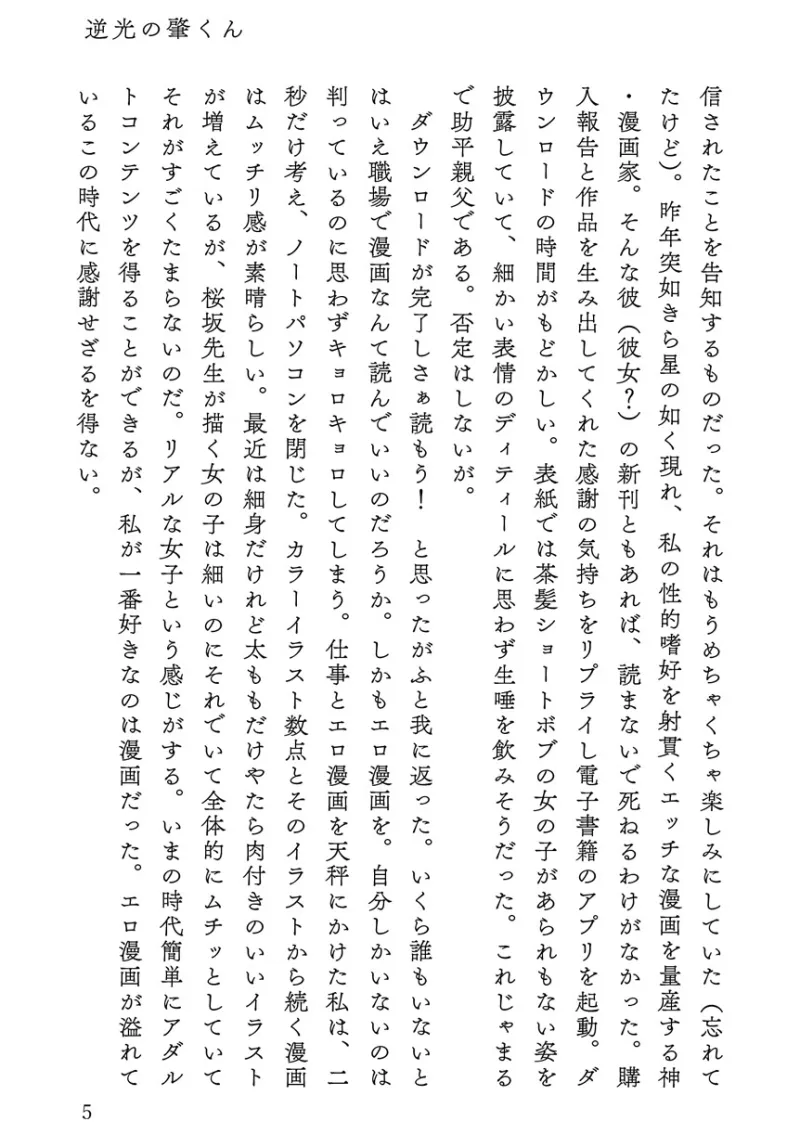 逆光の肇くん
信されたことを告知するものだった。それはもうめちゃくちゃ楽しみにしていた（忘れて
たけど）。昨年突如きら星の如く現れ、私の性的嗜好を射貫くエッチな漫画を量産する神
・漫画家。そんな彼（彼女？）の新刊ともあれば、読まないで死ねるわけがなかった。購
入報告と作品を生み出してくれた感謝の気持ちをリプライし電子書籍のアプリを起動。ダ
ウンロードの時間がもどかしい。表紙では茶髪ショートボブの女の子があられもない姿を
披露していて、細かい表情のディティールに思わず生唾を飲みそうだった。これじゃまる
で助平親父である。否定はしないが。
ダウンロードが完了しさぁ読もう！　と思ったがふと我に返った。いくら誰もいないと
はいえ職場で漫画なんて読んでいいのだろうか。しかもエロ漫画を。自分しかいないのは
判っているのに思わずキョロキョロしてしまう。仕事とエロ漫画を天秤にかけた私は、二
秒だけ考え、ノートパソコンを閉じた。カラーイラスト数点とそのイラストから続く漫画
はムッチリ感が素晴らしい。最近は細身だけれど太ももだけやたら肉付きのいいイラスト
が増えているが、桜坂先生が描く女の子は細いのにそれでいて全体的にムチッとしていて
それがすごくたまらないのだ。リアルな女子という感じがする。いまの時代簡単にアダル
トコンテンツを得ることができるが、私が一番好きなのは漫画だった。エロ漫画が溢れて
いるこの時代に感謝せざるを得ない。
5